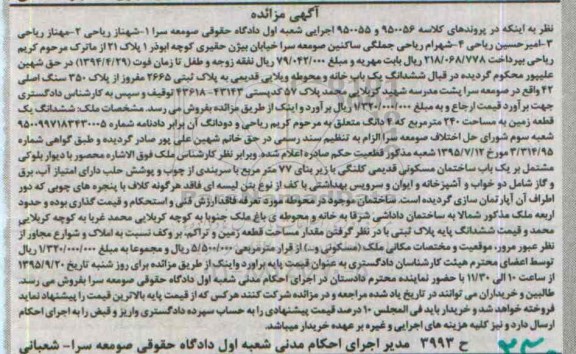 آگهی مزائده
نظر به اینکه در پروندهای کلاسه ۹۵۰۰۵۶ و ۹۵۰۰۵۵ اجرایی شعبه اول دادگاه حقوقی صومعه سرا ۱-شهناز ریاحی ۲-مهناز ریاحی
۳-امیرحسین ریاحی ۴-شهرام ریاحی جملگی ساکنین صومعه سرا خیابان بیژن حقیری کوچه ابوذر ۱ پلاک ۲۱ از ماترک مرحوم کریم
ریاحی بپرداخت ۲۱۸/۰۶۸/۷۷۸ ریال بابت مهریه و مبلغ ۷۹/۰۴۲/۰۰۰ ریال نفقه زوجه و طفل تا زمان فوت (۱۳۹۴/۴/۲۹) در حق خانم شهین
علیپور محکوم گردیده در قبال ششدانگ یک باب خانه و محوطه ویلایی قدیمی به پلاک ثبتی ۲۶۶۵ مفروز از پلاک ۳۵۰ سنگ اصلی
۴۲ واقع در صومعه سرا پشت مدرسه شهید کربلایی محمد پلاک ۵۷ کدپستی ۴۳۱۴۳-۴۳۶۱۸ توقیف و سپس به کارشناس دادگستری
جهت برآورد قیمت ارجاع و به مبلغ ۱/۳۲۰/۰۰۰/۰۰۰ ریال برآورد و اینک از طریق مزائده بفروش می رسد. مشخصات ملک: ششدانگ یک
قطعه زمین به مساحت ۲۴۰ مترمربع که ۴ دانگ متعلق به مرحوم کریم ریاحی و دودانگ آن برابر دادنامه شماره ۹۵۰۰۹۹۷۱۸۳۴۳۰۰۰۵
شعبه سوم شورای حل اختلاف صومعه سرا الزام به تنظیم سند رسمی در حق خانم شهین علی پور صادر گردیده و طبق گواهی شماره
۳/۳۱۴/۹۵ مورخ ۱۳۹۵/۷/۱۲ شعبه مذکور قطعیت حکم صادره اعلام شده. وبرابر نظر کارشناس ملک فوق الاشاره محصور با دیوار بلوکی
مشتمل بر یک باب ساختمان مسکونی قدیمی کلنگی با زیر بنای ۷۷ متر مربع با سربندی از چوب و پوشش حلب دارای امتیاز آب، برق
و گاز شامل دو خواب و آشپزخانه و ایوان و سرویس بهداشتی با کف از نوع بتن لیسه ای فاقد هرگونه کلاف با پنجره های چوبی که دور
اطراف آن آپارتمان سازی گردیده است. ساختمان موجود در محوطه مورد تعرفه فاقد ارزش فنی و استحکام و قیمت گذاری بوده و حدود
اربعه ملک مذکور شمالا به ساختمان داداشی شرقا به خانه و محوطه ی باغ ملک جنوبا به کوچه کربلایی محمد غربا به کوچه کربلایی
محمد و قیمت ششدانگ پایه پلاک ثبتی با در نظر گرفتن مقدار مساحت قطعه زمین و تراکم، بر وکف نسبت به املاک و شوارع مجاور از
نظر عبور مرور، موقعیت و مختصات مکانی ملک (مسکونی و..) از قرار مترمربعی ۵/۵۰۰/۰۰۰ ریال و مجموعا به مبلغ ۱/۳۲۰/۰۰۰/۰۰۰ ریال
توسط اعضای محترم هیئت کارشناسان دادگستری به عنوان قیمت پایه براورد واینک از طریق مزائده برای روز شنبه تاریخ ۱۳۹۵/۹/۲۰
از ساعت ۱۰ الی ۱۱/۳۰ با حضور نماینده محترم دادستان در اجرای احکام مدنی شعبه اول دادگاه حقوقی صومعه سرا بفروش می رسد.
طالبین و خریداران می توانند در تاریخ یاد شده مراجعه و در مزائده شرکت کنند هرکس که از قیمت پایه بالاترین قیمت را پیشنهاد نماید
فروخته خواهد شد و خریدار باید فی المجلس ۱۰ درصد قیمت پیشنهادی را به حساب سپرده دادگستری واریز و قبض را به اجرای احکام
ارسال دارد و نیز کلیه هزینه های اجرایی و غیره بر عهده خریدار میباشد.
ح ۳۹۹۳ مدیر اجرای احکام مدنی شعبه اول دادگاه حقوقی صومعه سرا- شعبانی